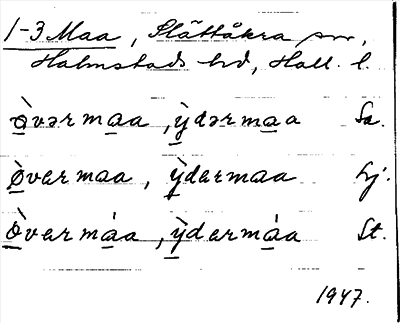 1-3 Maa, Slättåkra sn,
Halmstads hd, Hall. l.
ò̲vərma̲a, ỳ̲dərma̲a Sa.
ò̲varma̲a, ỳ̲darmaa Lj.
ò̲varmá̲a, ỳ̲darmá̲a St.
1947.